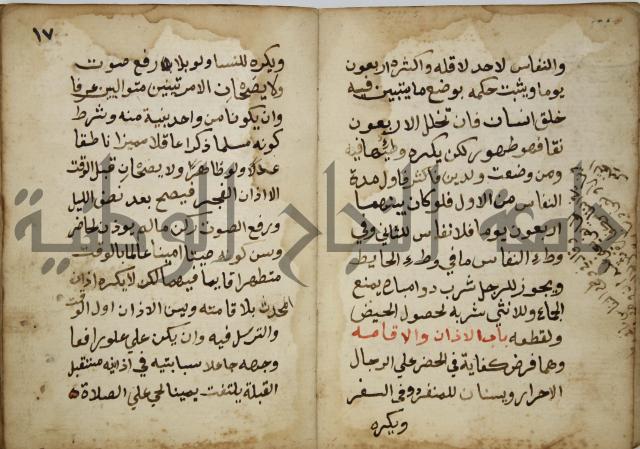 والنفاس لاحد لاقله واكثره اربعون
يوما ويثبت حكمه بوضع ما يتبين فيه
خلق انسان فان تخلل الاربعون
نقا فهو طهور لكن يكره وطئها فيه
ومن وضعت ولدين فاكثر فاول مدة
النفاس من الاول فلو كان بينهما
اربعون يوما فلا نفاس للثاني وفي
وطء النفاس ما في وطء الحايض
ويجوز للرجل شرب دوا مباح يمنع
الجماع وللانثي شربه لحصول الحيض
ولقطعه باب الاذان والاقامه
وهما فرض كفاية في الحضر علي الرجال
الاحرار ويسنان للمنفرد وفي السفر
ويكره
١٧
ويكره للنسا ولو بلا رفع صوت
ولا يصحان الا مرتبين متواليين عرفا
وان يكونا من واحد بنية منه وشرط
كونه مسلما ذكرا عاقلا مميزا ناطقا
عدلا ولو ظاهرا ولا يصحان قبل الوقت
الا اذان الفجر فيصح بعد نصف الليل
ورفع الصوت ركن ما لم يوذن لحاضر
وسن كونه صيتا امينا عالما بالوقت
متطهرا قايما فيهما لكن لا يكره اذان
المحدث بل اقامته ويسن الاذان اول الوقت
والترسل فيه وان يكن علي علو رافعا
وجهه جاعلا سبابتيه في اذنيه مستقبل
القبلة يلتفت يمينا لحي علي الصلاة
جامعة النجاح الوطنية